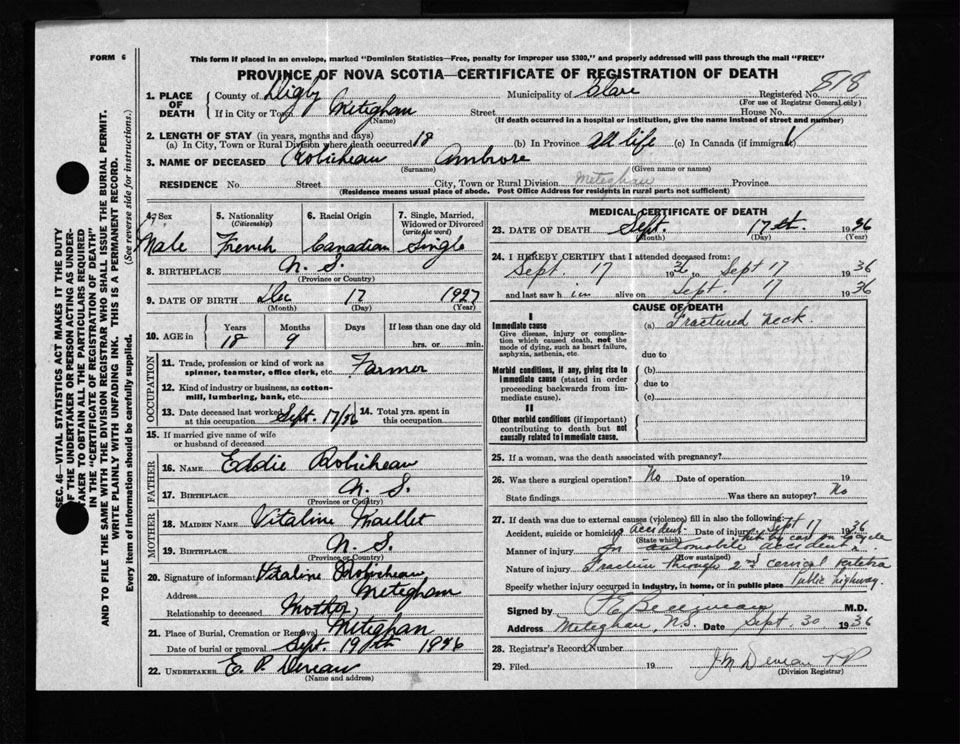 FORM 6
This form if placed in an envelope, marked "Dominion Statistics—Free, penalty for improper use $300," and properly addressed will pass through the mail "FREE"
PROVINCE OF NOVA SCOTIA—CERTIFICATE OF REGISTRATION OF DEATH
1. PLACE OF DEATH
County of Digby Municipality of Clare Registered No. 818
(For use of Registrar General only)
If in City or Town Meteghan Street House No.
(Name) (If death occurred in a hospital or institution, give the name instead of street and number)
2. LENGTH OF STAY (in years, months and days)
(a) In City, Town or Rural Division where death occurred 18 (b) In Province All life (c) In Canada (if immigrant)
3. NAME OF DECEASED Robicheau Ambrose
(Surname) (Given name or names)
RESIDENCE No. Street City, Town or Rural Division Meteghan Province
(Residence means usual place of abode. Post Office Address for residents in rural parts not sufficient)
4. Sex Male
5. Nationality (Citizenship) French
6. Racial Origin Canadian
7. Single, Married, Widowed or Divorced (write the word) Single
8. BIRTHPLACE N. S.
(Province or Country)
9. DATE OF BIRTH Dec 17 1927
(Month) (Day) (Year)
10. AGE in Years 18 Months 9 Days If less than one day old
hrs. or min.
OCCUPATION
11. Trade, profession or kind of work as spinner, teamster, office clerk, etc. Farmer
12. Kind of industry or business, as cotton-mill, lumbering, bank, etc.
13. Date deceased last worked at this occupation Sept. 17/36 14. Total yrs. spent in this occupation.
15. If married give name of wife or husband of deceased
FATHER
16. NAME Eddie Robicheau
17. BIRTHPLACE N. S.
(Province or Country)
MOTHER
18. MAIDEN NAME Vitaline Maillet
19. BIRTHPLACE N. S.
(Province or Country)
20. Signature of informant Vitaline Robicheau
Address Meteghan
Relationship to deceased Mother
21. Place of Burial, Cremation or Removal Meteghan
Date of burial or removal Sept. 19th 1946
22. UNDERTAKER E. P. Deveau
(Name and address)
MEDICAL CERTIFICATE OF DEATH
23. DATE OF DEATH Sept. 17 1936
(Month) (Day) (Year)
24. I HEREBY CERTIFY that I attended deceased from:
Sept. 17 1936 to Sept 17 1936
and last saw him alive on Sept. 17 1936
CAUSE OF DEATH
I
Immediate cause
Give disease, injury or complication which caused death, not the mode of dying, such as heart failure, asphyxia, asthenia, etc.
(a) Fractured neck.
due to
Morbid conditions, if any, giving rise to immediate cause (stated in order proceeding backwards from immediate cause).
(b)
due to
(c)
II
Other morbid conditions (if important) contributing to death but not causally related to immediate cause.
25. If a woman, was the death associated with pregnancy?
26. Was there a surgical operation? No Date of operation 19
State findings Was there an autopsy? No
27. If death was due to external causes (violence) fill in also the following:
Accident, suicide or homicide? accident Date of injury Sept 17 1936
(State which)
Manner of injury In automobile accident. Hit by car on cycle
(How sustained)
Nature of injury Fracture through 2nd cervical
Specify whether injury occurred in industry, in home, or in public place Public highway.
Signed by M.D.
Address Meteghan, N.S. Date Sept. 30 1936
28. Registrar's Record Number
29. Filed 19 J M Deveau
(Division Registrar)
SEC. 46—VITAL STATISTICS ACT MAKES IT THE DUTY OF THE UNDERTAKER OR PERSON ACTING AS UNDERTAKER TO OBTAIN ALL THE PARTICULARS REQUIRED IN THE "CERTIFICATE OF REGISTRATION OF DEATH"
AND TO FILE THE SAME WITH THE DIVISION REGISTRAR WHO SHALL ISSUE THE BURIAL PERMIT.
WRITE PLAINLY WITH UNFADING INK. THIS IS A PERMANENT RECORD.
Every item of information should be carefully supplied. (See reverse side for instructions.)